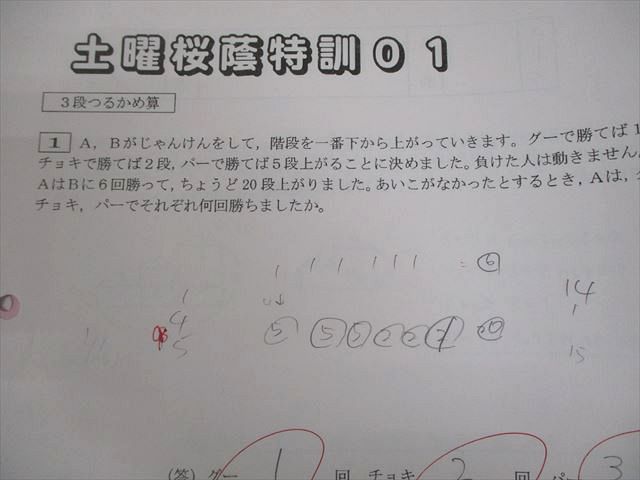 土曜桜蔭特訓01
3段つるかめ算
1 A,Bがじゃんけんをして,階段を一番下から上がっていきます。グーで勝てば1
チョキで勝てば2段,パーで勝てば5段上がることに決めました。負けた人は動きません。
AはBに6回勝って,ちょうど20段上がりました。あいこがなかったとするとき,Aは,
チョキ,パーでそれぞれ何回勝ちましたか。
1 1 1 1 1 1 = 6
1
4
5
14
1
15
(答) グー 1 回 チョキ 2 回 パー 3